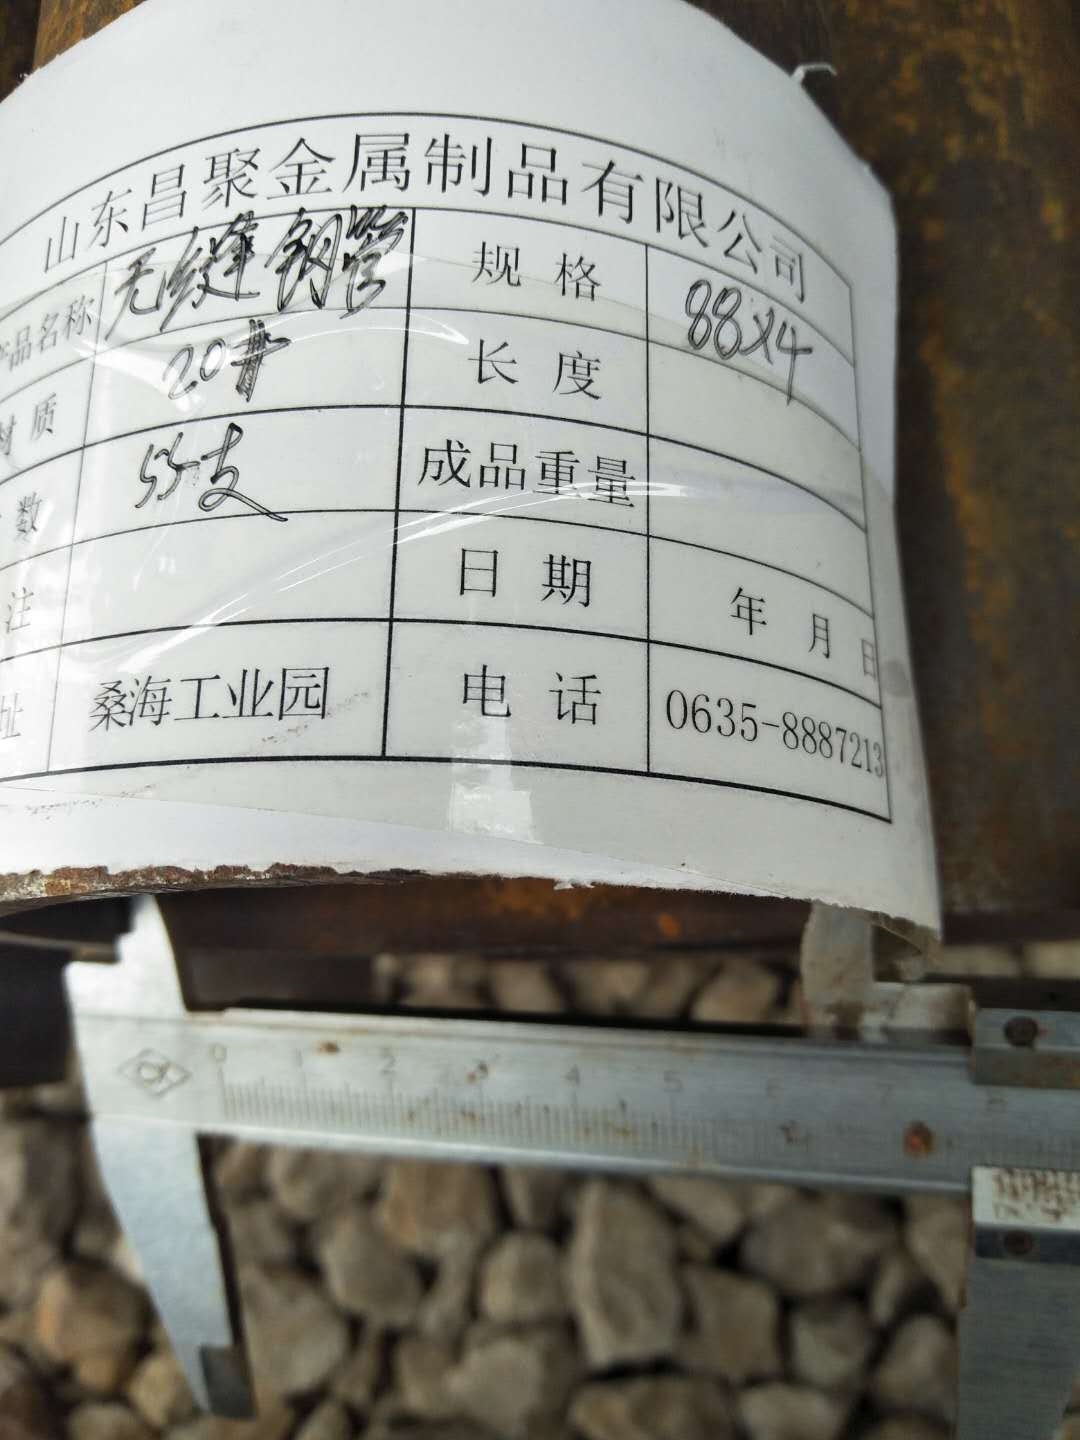 山东昌聚金属制品有限公司
产品名称 无缝钢管 规格 88×4
材质 20# 长度
数 55支 成品重量
注 日期 年 月 日
址 桑海工业园 电话 0635-8887213
0 1 2 3 4 5 6 7 8